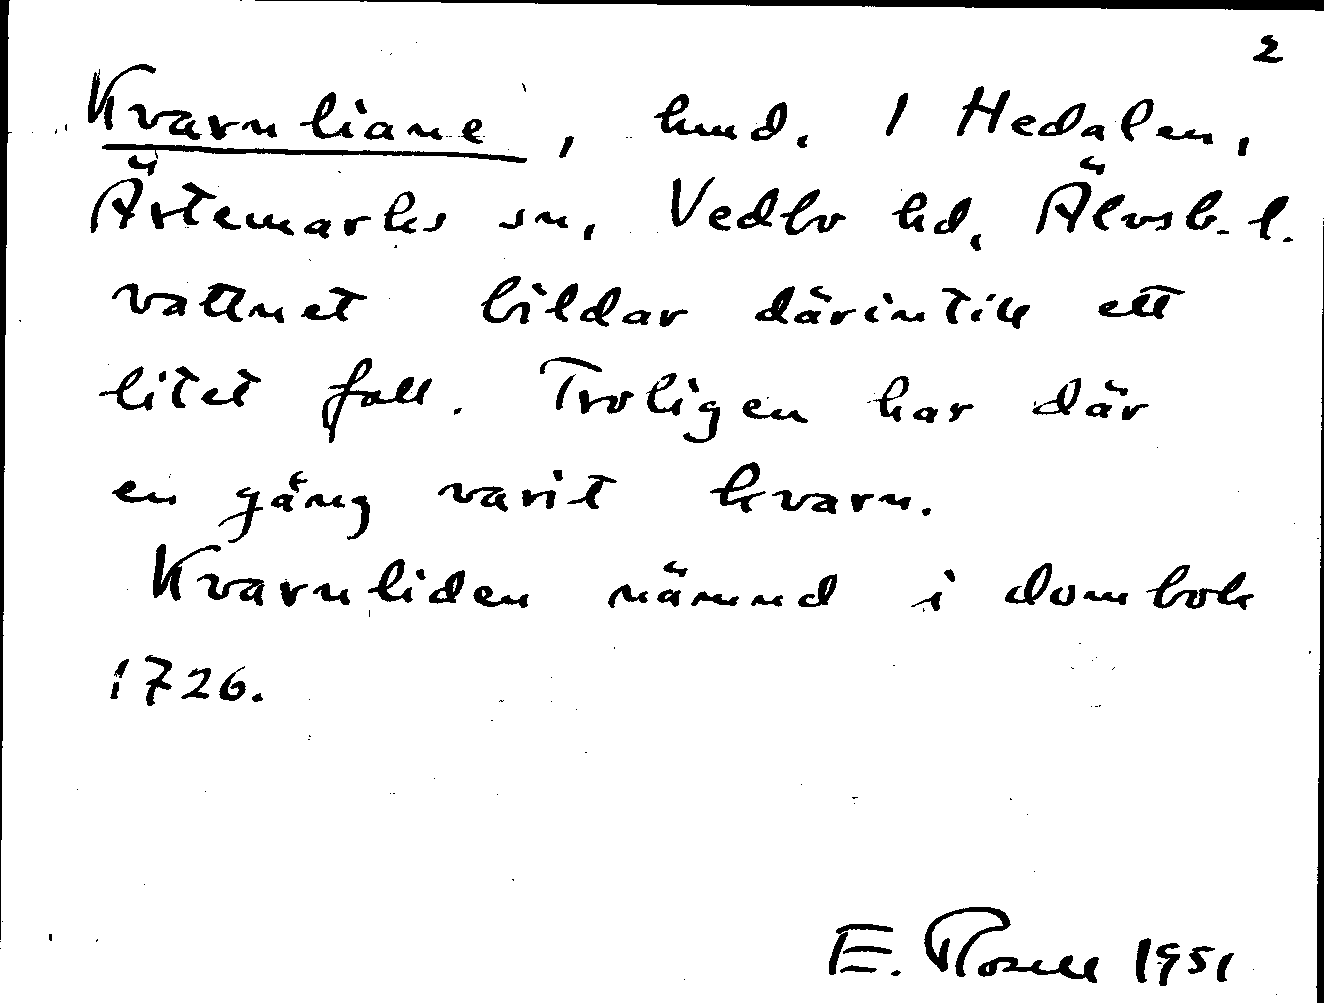 2
Kvarnliane, hmd. 1 Hedalen,
Ärtemarks sn, Vedbo hd, Älvsb. l.
vattnet bildar därintill ett
litet fall. Troligen har där
en gång varit kvarn.
Kvarnliden nämnd i dombok
1726.
E. Rosell 1951